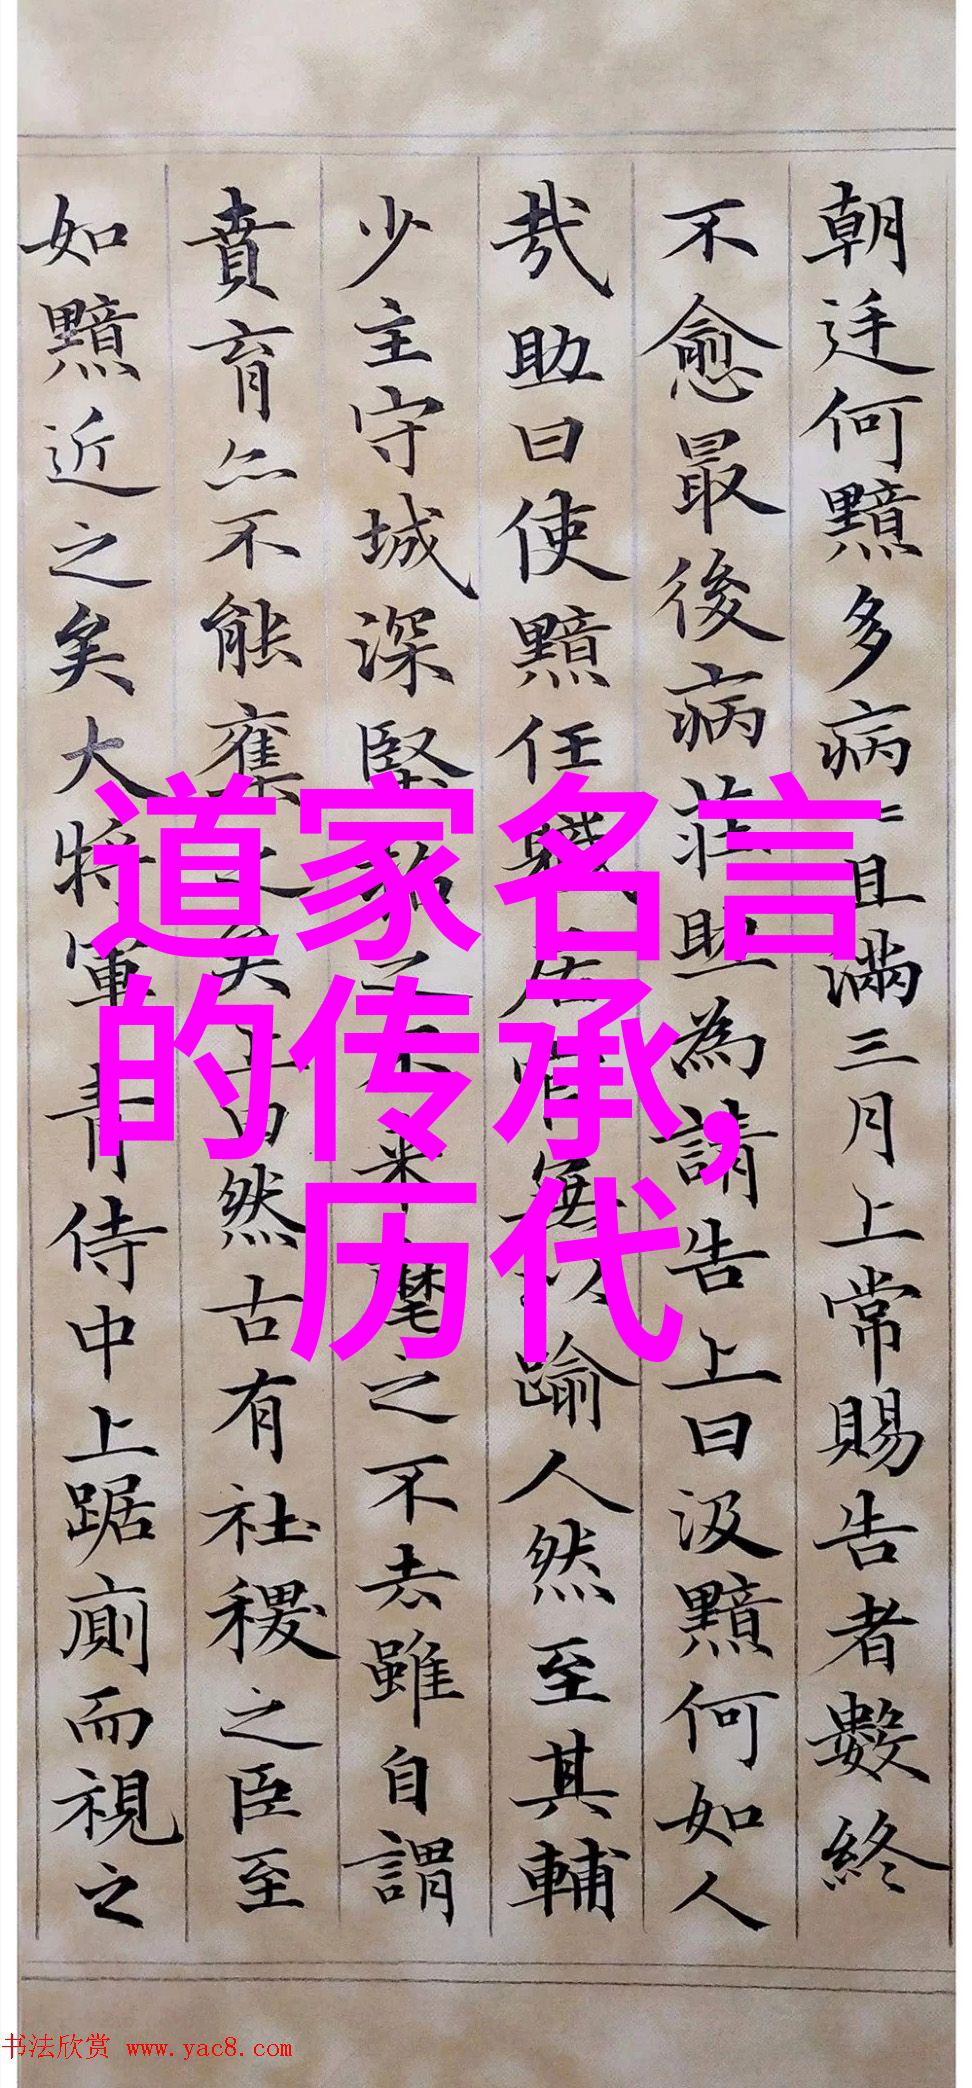 朝廷何黯多病〻且滿三月上常賜告者數終
不愈最後病莊助為請告上曰汲黯何如人
哉助曰使黯任職居官無以踰人然至其輔
少主守城深堅招之不來麾之不去雖自謂
賁育亦不能奪之矣上曰然古有社稷之臣至
如黯近之矣大將軍青侍中上踞廁而視之
道家名言
的传承,
历代
书法欣赏 www.yac8.com